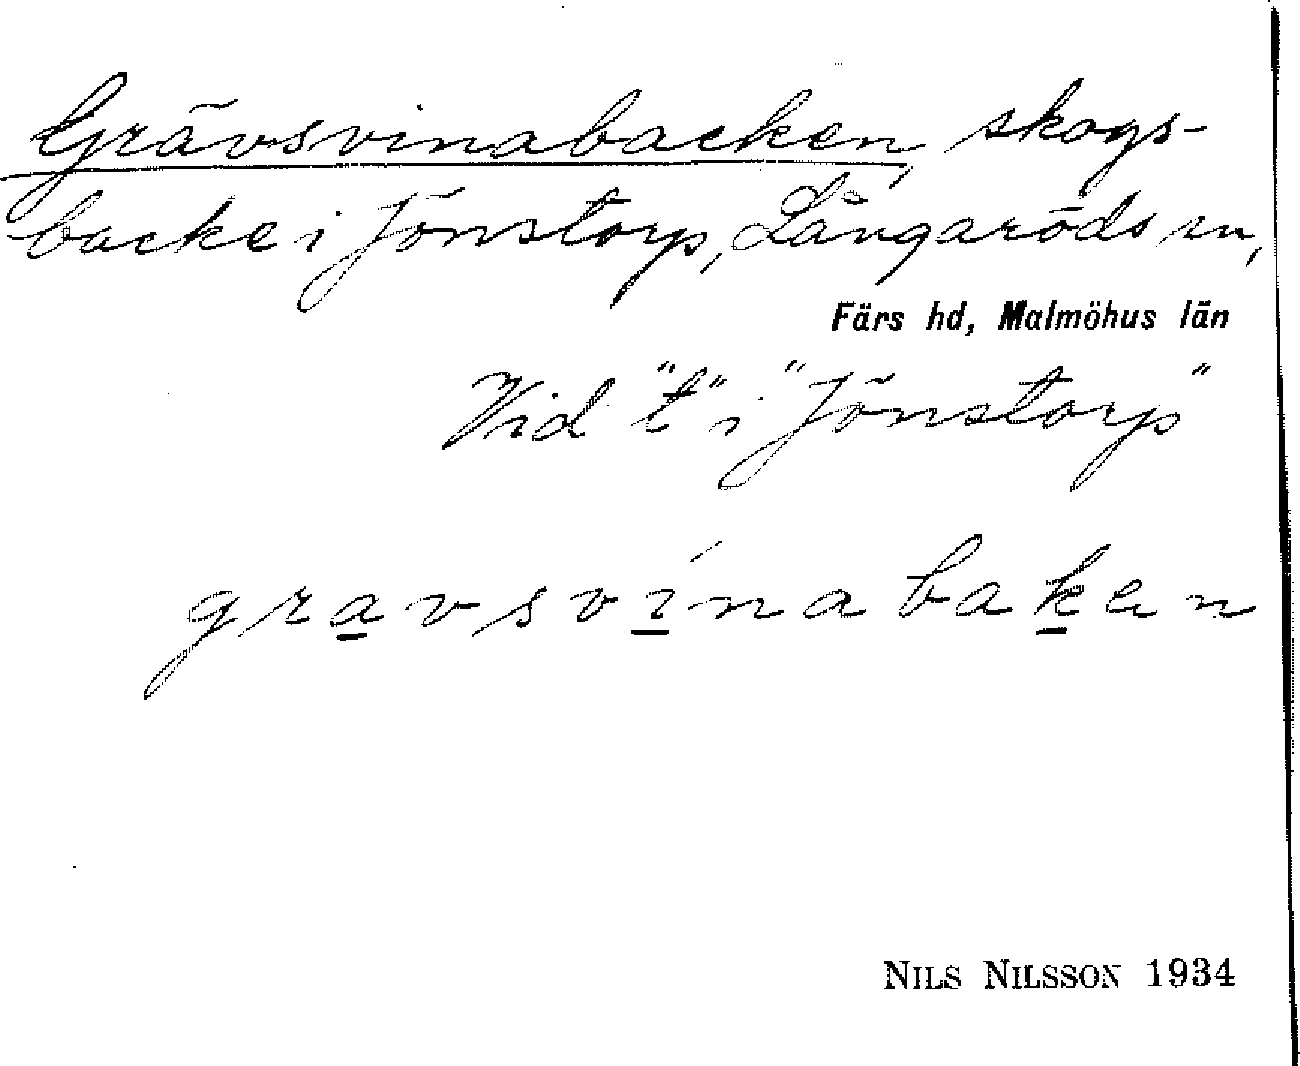 Grävsvinabacken, skogs-
backe i Jönstorp, Långaröds sn,
Färs hd, Malmöhus län
Vid "t" i "Jönstorp"
gravsvínabaken
NILS NILSSON 1934